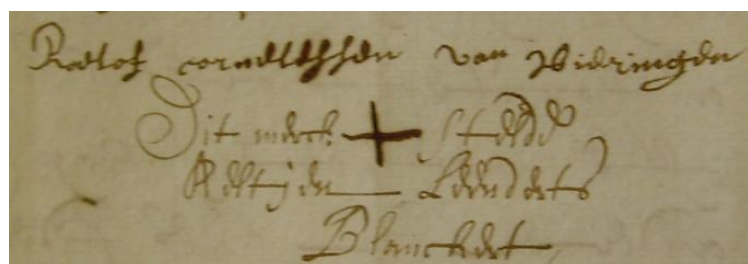 Roelof cornelissen van Wieringen
Dit merck + stelde
Neeltjen Leenderts
Blanckert